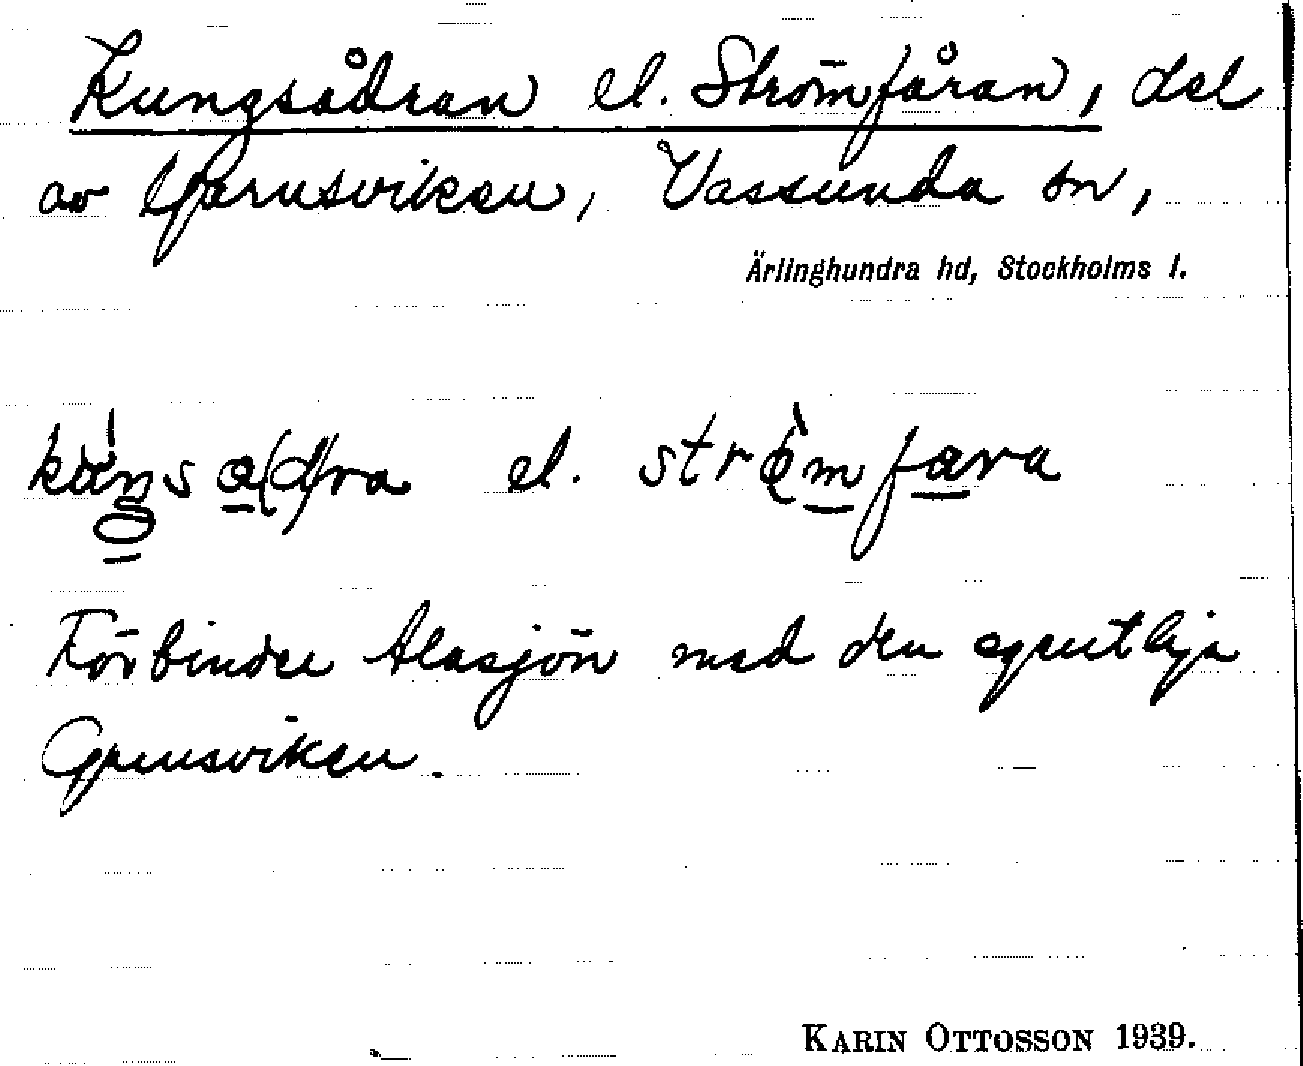 Kungsådran el. Strömfåran, del
av Garnsviken, Vassunda sn,
Ärlinghundra hd, Stockholms l.
el.
Förbinder Alasjön med den egentliga
Garnsviken.
KARIN OTTOSSON 1939.